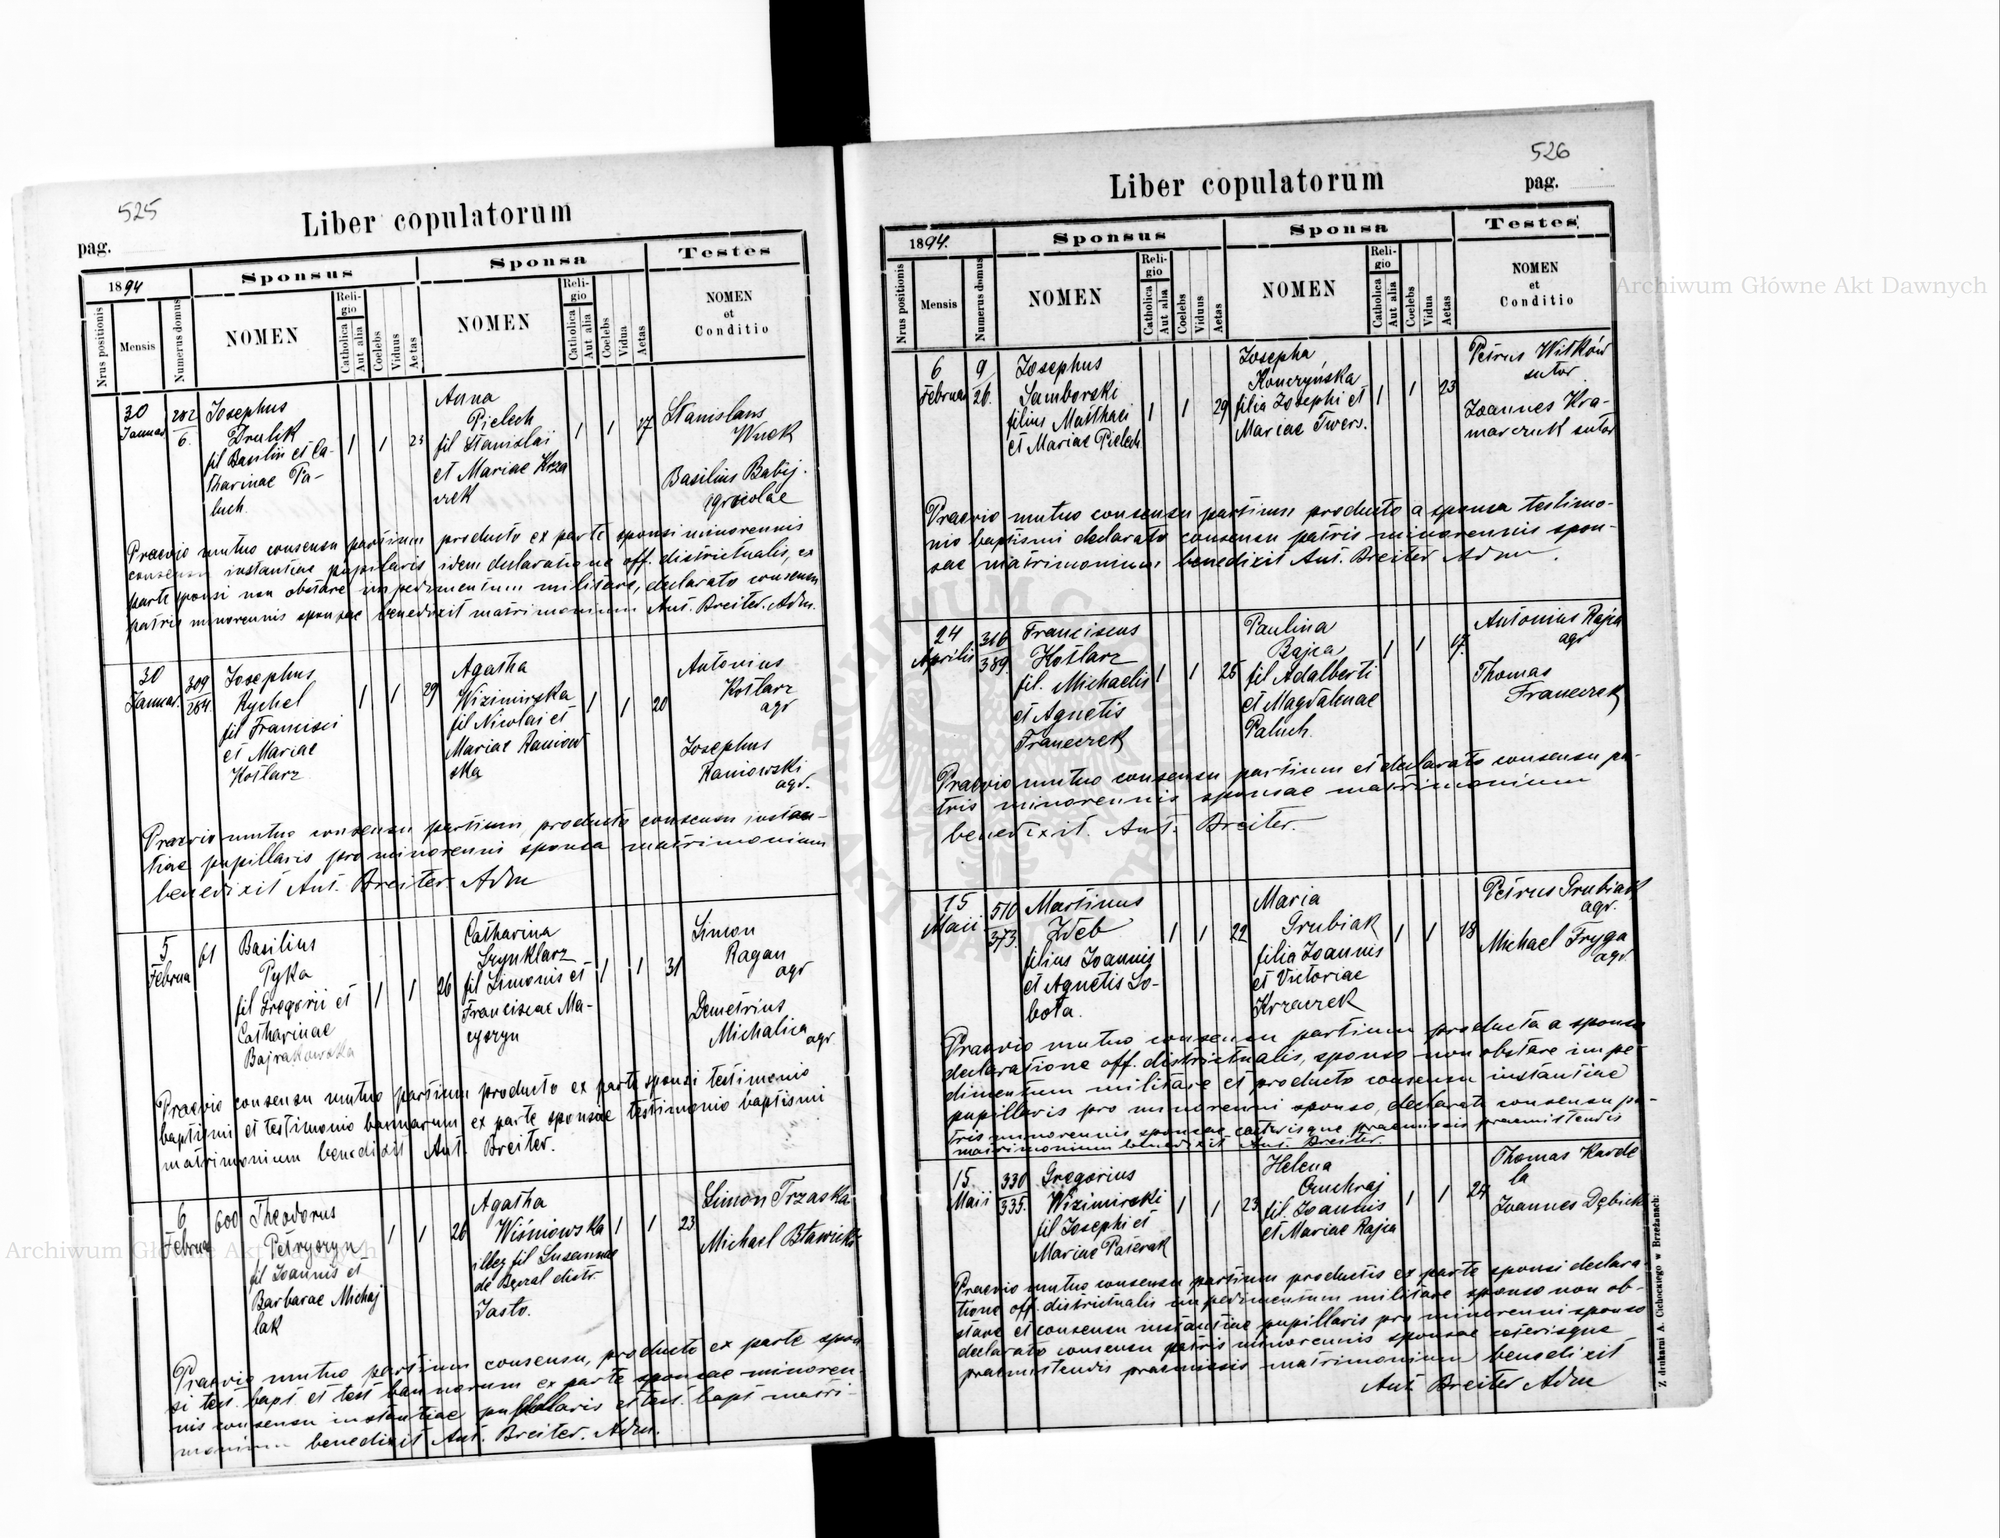 525
Liber copulatorum
pag.
1894
Sponsus
Sponsa
Testes
Nrus positionis
Mensis
Numerus domus
NOMEN
Religio
Catholica
Aut alia
Coelebs
Viduus
Aetas
NOMEN
Religio
Catholica
Aut alia
Coelebs
Vidua
Aetas
NOMEN
et
Conditio
30
Januar.
202
6.
Josephus
Drulik
fil Basilii et Ca-
tharinae Pa-
luch.
1 1 23
Anna
Pielech
fil Stanislai
et Mariae Krza
czek
1 1 17
Stanislaus
Wnek
Basilius Babij.
agricolae
Praevio mutuo consensu partium producto ex parte sponsi minorennis
consensu instantiae pupilaris idem declaratione off. districtualis, ex
parte sponsi non obstare impedimentum militare, declarato consensu
patris minorennis sponsae benedixit matrimonium Ant. Breiter. Adm.
30
Januar.
309
284.
Josephus
Rychel
fil Francisci
et Mariae
Kotlarz
1 1 29
Agatha
Wizimirska
fil Nicolai et
Mariae Raniow
ska
1 1 20
Antonius
Kotlarz
agr
Josephus
Raniowski
agr.
Praevio mutuo consensu partium, producto consensu instan-
tiae pupillaris pro minorenni sponsa matrimonium
benedixit Ant. Breiter Adm
5
Februa
61
Basilius
Pyka
fil Gregorii et
Catharinae
Bajrakowska
1 1 26
Catharina
Szynklarz
fil Simonis et
Franciscae Ma-
cyszyn
1 1 31
Simon
Ragan
agr
Demetrius
Michalica
agr.
Praevio consensu mutuo partium producto ex parte sponsi testimonio
baptismi et testimonio bannorum ex parte sponsae testimonio baptismi
matrimonium benedixit Ant. Breiter.
6
Februa
600
Theodorus
Petryszyn
fil Joannis et
Barbarae Michaj
lak
1 1 26
Agatha
Wiśniowska
illeg fil Susannae
de distr.
Jasło.
1 1 23
Simon Trzaska
Michael Bławicki
Praevio mutuo partium consensu, producto ex parte spon
si test. bapt. et test bannorum ex parte sponsae minoren-
nis consensu instantiae pupillaris et test. bapt matri-
monium benedixit Ant. Breiter. Adm.
526
Liber copulatorum
pag.
1894.
Sponsus
Sponsa
Testes
Nrus positionis
Mensis
Numerus domus
NOMEN
Religio
Catholica
Aut alia
Coelebs
Viduus
Aetas
NOMEN
Religio
Catholica
Aut alia
Coelebs
Vidua
Aetas
NOMEN
et
Conditio
6
Februa
9
26.
Josephus
Samborski
filius Matthaei
et Mariae Pielech
1 1 29
Josepha
Konczyńska
filia Josephi et
Mariae Twers.
1 1 23
Petrus Witków
sutor
Joannes Kra-
marczuk sutor
Praevio mutuo consensu partium producto a sponsa testimo-
nio baptismi declarato consensu patris minorennis spon-
sae matrimonium benedixit Ant. Breiter Adm.
24
Aprilis
316
389.
Franciscus
Kotlarz
fil. Michaelis
et Agnetis
Franczek
1 1 25
Paulina
Rajca
fil Adalberti
et Magdalenae
Paluch.
1 1 17.
Antonius Rajca
agr
Thomas
Franczek
Praevio mutuo consensu partium et declarato consensu pa-
tris minorennis sponsae matrimonium
benedixit. Ant. Breiter.
15
Maii
510
373.
Martinus
Zdeb
filius Joannis
et Agnetis So-
bota.
1 1 22
Maria
Grubiak
filia Joannis
et Victoriae
Krzaczek
1 1 18
Petrus Grubiak
agr.
Michael Fryga
agr.
Praevio mutuo consensu partium producta a sponso
declaratione off. districtualis, sponso non obstare impe-
dimentum militare et producto consensu instantiae
pupillaris pro minorenni sponso, declarato consensu pa-
tris minorennis sponsae caeterisque praemissis praemittendis
matrimonium benedixit Ant. Breiter.
15
Maii
330
335.
Gregorius
Wizimirski
fil Josephi et
Mariae Paterak
1 1 23
Helena
Onuchraj
fil. Joannis
et Mariae Rajca
1 1 24
Thomas Karde
la
Joannes Dębicki
Praevio mutuo consensu partium productis ex parte sponsi declara-
tione off. districtualis impedimentum militare sponso non ob-
stare et consensu instantiae pupillaris pro minorenni sponso
declarato consensu patris minorennis sponsae ceterisque
praemittendis praemissis matrimonium benedixit
Ant. Breiter Adm
Z drukarni A. Cichockiego w Brzeżanach:
Archiwum Główne Akt Dawnych
Archiwum Główne Akt Dawnych